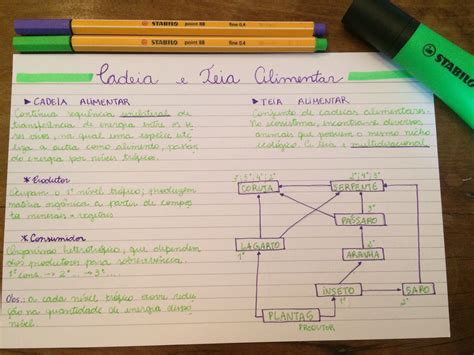 STABILO point 88 fine 0,4
STABILO point 88 fine 0,4
STABILO
Cadeia e Teia Alimentar
► CADEIA ALIMENTAR
Contínua sequência unilateral de
transferência de energia entre os se
res vivos, na qual uma espécie uti
liza a outra como alimento, passan
do energia por níveis tróficos.
* Produtor
Ocupam o 1º nível trófico; produzem
matéria orgânica a partir de compos
tos minerais e
* Consumidor
Organismo heterotrófico, que dependem
dos produtores para sobrevivência.
1º cons. → 2º ... → 3º ...
Obs: a cada nível trófico ocorre redu
ção na quantidade de energia
nível.
► TEIA ALIMENTAR
Conjunto de cadeias alimentares.
No ecossistema, encontra-se diversos
animais que possuem o mesmo nicho
ecológico. A teia é multidirecional
CORUJA
SERPENTE
3º
PÁSSARO
LAGARTO
2º
ARANHA
INSETO
1º
SAPO
2º
PLANTAS
PRODUTOR